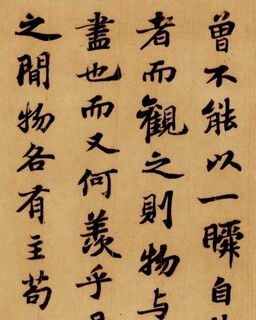 曾不能以一瞬自
者而觀之則物与
盡也而又何羨乎
之間物各有主苟